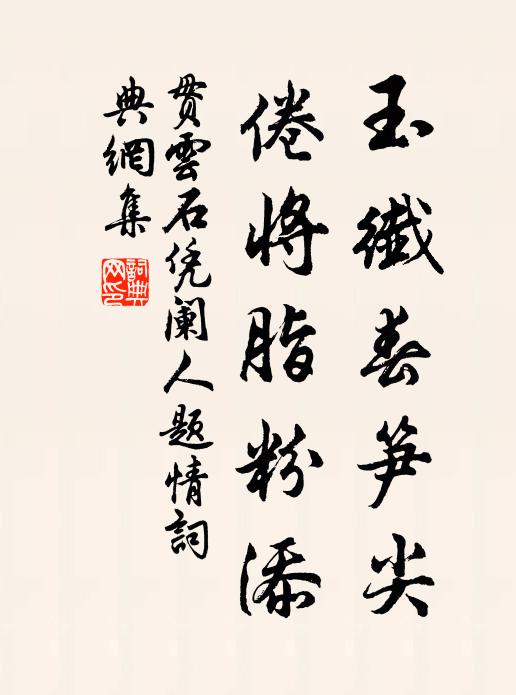 玉纖春笋尖
倦將脂粉添
贯雲石凭阑人題情詞
典網集
詞典
网印